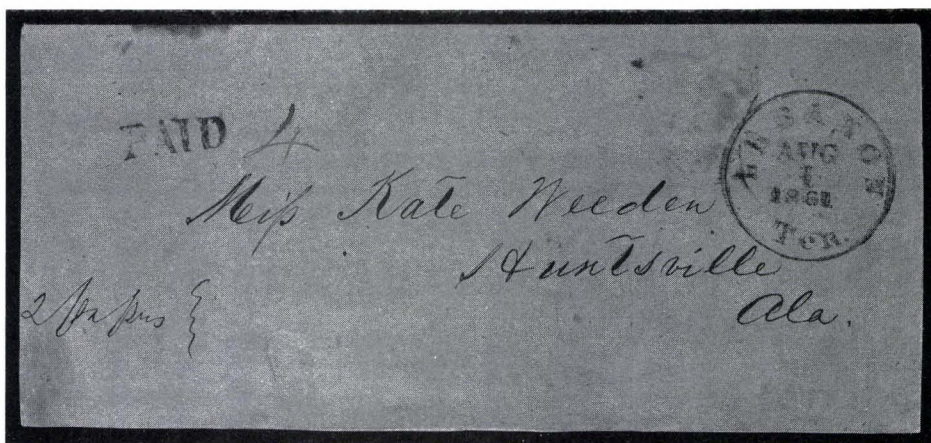 PAID 4
AUG
1
1861
Ten.
Miss Kate Weeden
Huntsville
Ala.
2 papers